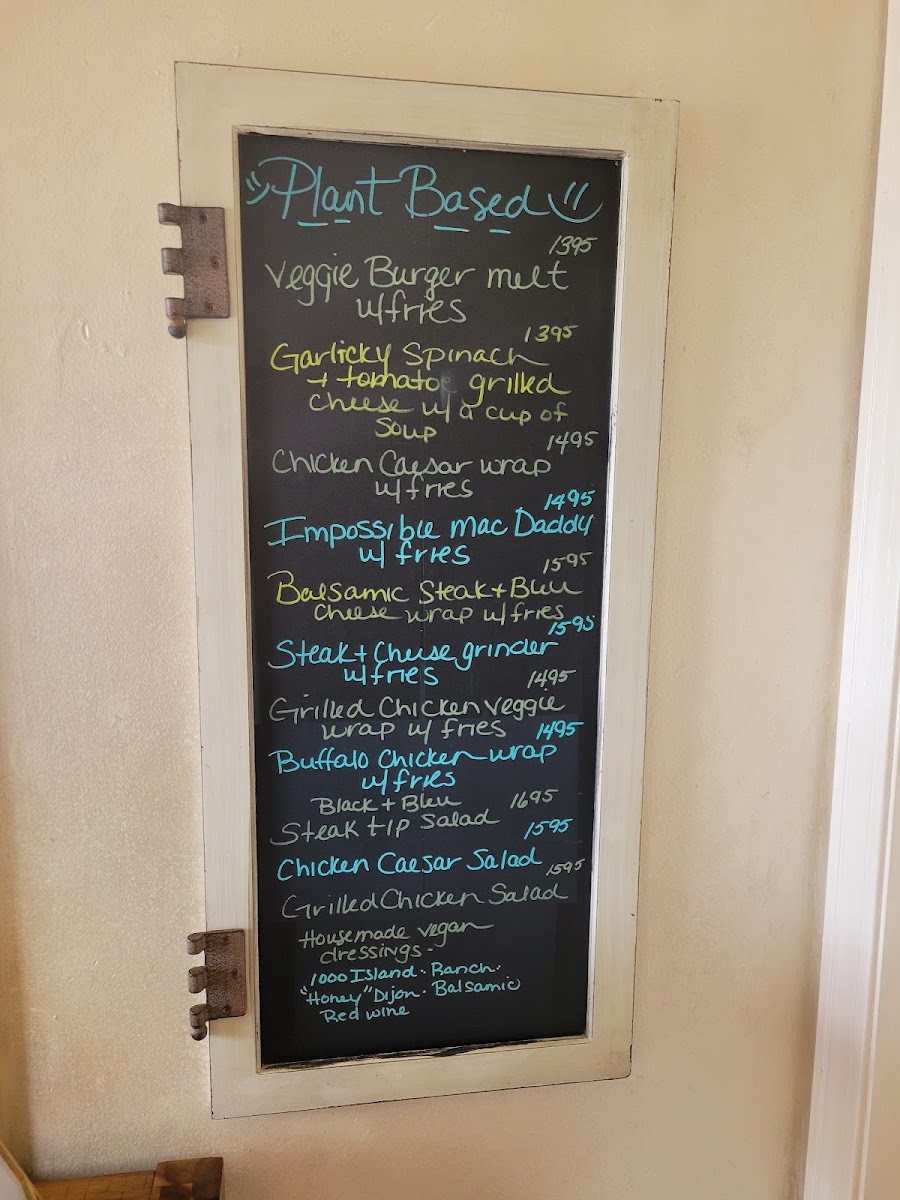 Plant Based
1395
Veggie Burger melt
w/fries
1395
Garlicky Spinach
+ tomatoe grilled
cheese w/ a cup of
Soup
1495
Chicken Caesar wrap
w/fries
1495
Impossible Mac Daddy
w/ fries
1595
Balsamic Steak + Bleu
Cheese wrap w/fries
1595
Steak + Cheese grinder
w/fries
1495
Grilled Chicken veggie
wrap w/ fries
1495
Buffalo Chicken wrap
w/fries
Black + Bleu 1695
Steak tip Salad
1595
Chicken Caesar Salad
1595
Grilled Chicken Salad
Housemade vegan
dressings-
1000 Island · Ranch ·
"Honey" Dijon · Balsamic
Red wine